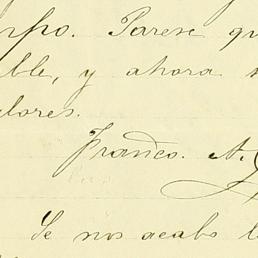 rpo. Parese qu
ble, y ahora
lores.
Franco. A.
Se nos acabo l